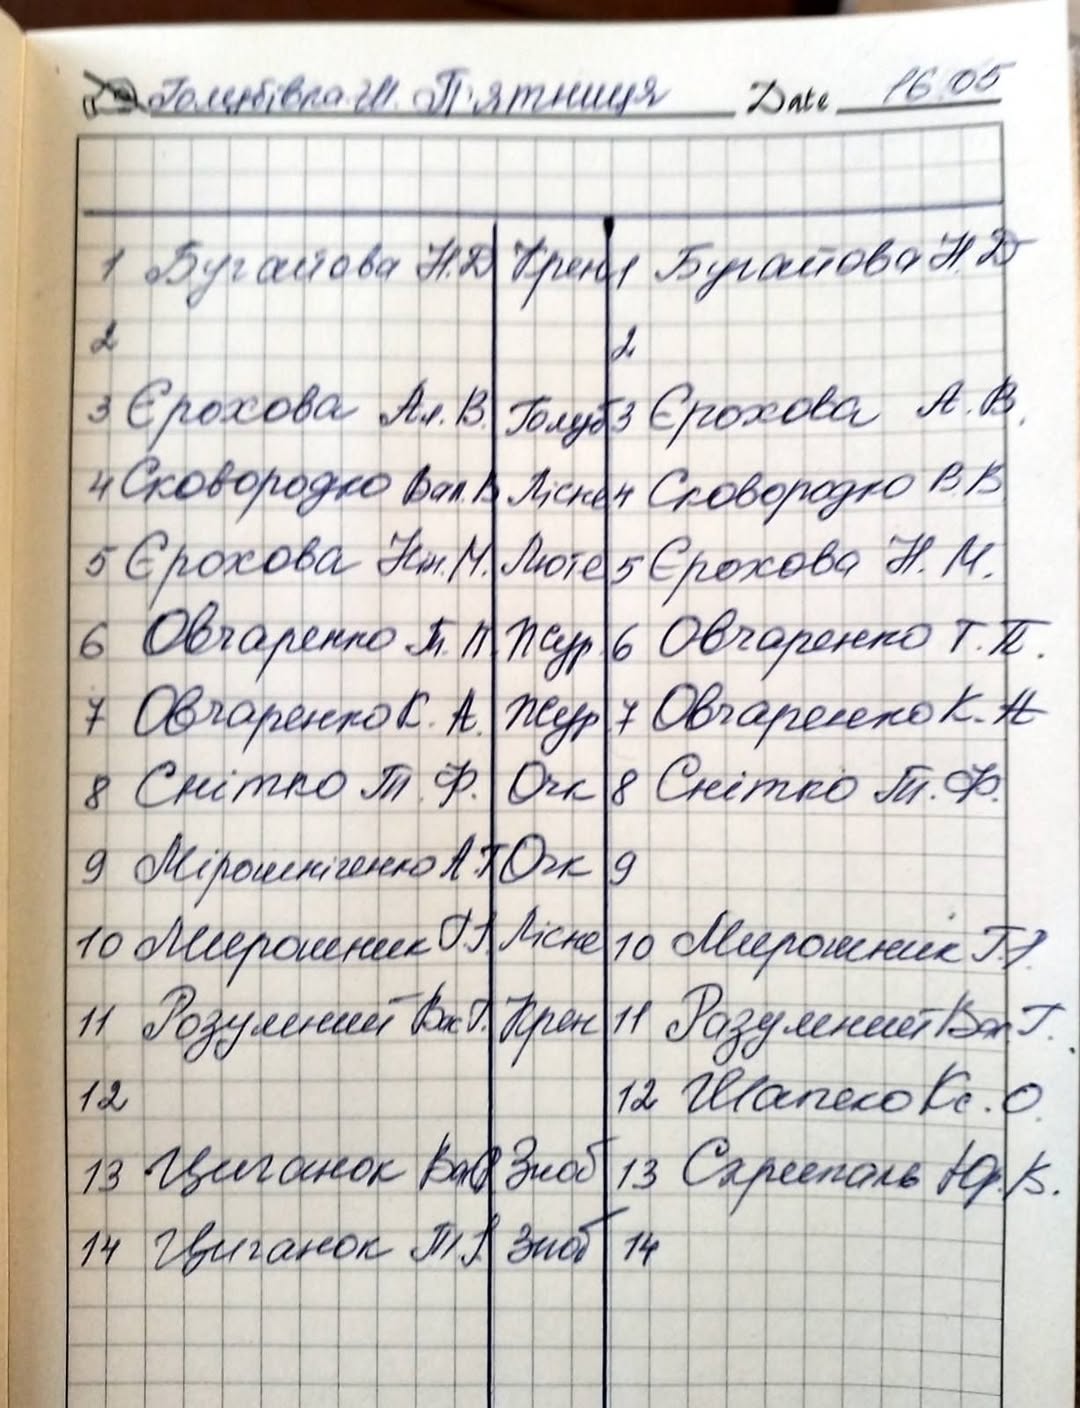 Голубівка Ш. П'ятниця Date 16.05
1 Бугайова Н.Д Крен 1 Бугайова Н.Д
2 2
3 Єрохова Ал. В. Голуб 3 Єрохова А. В.
4 Сковородко Вал. В Лісне 4 Сковородко В В
5 Єрохова Нт. М. Люте 5 Єрохова Н. М.
6 Овчаренко Т. П. Жур. 6 Овчаренко Т. П.
7 Овчаренко К. А. Жур 7 Овчаренко К. А
8 Снітко Т. Ф. Очк 8 Снітко Т. Ф.
9 Мірошніченко А.Г Очк 9
10 Мирошник Лісне 10 Мирошник
11 Розумний Вас Г. Крен 11 Разумний Г.
12 12 Шапеко Кс. О.
13 Циганок Зноб 13 Скрипаль Юр. В.
14 Циганок Зноб 14